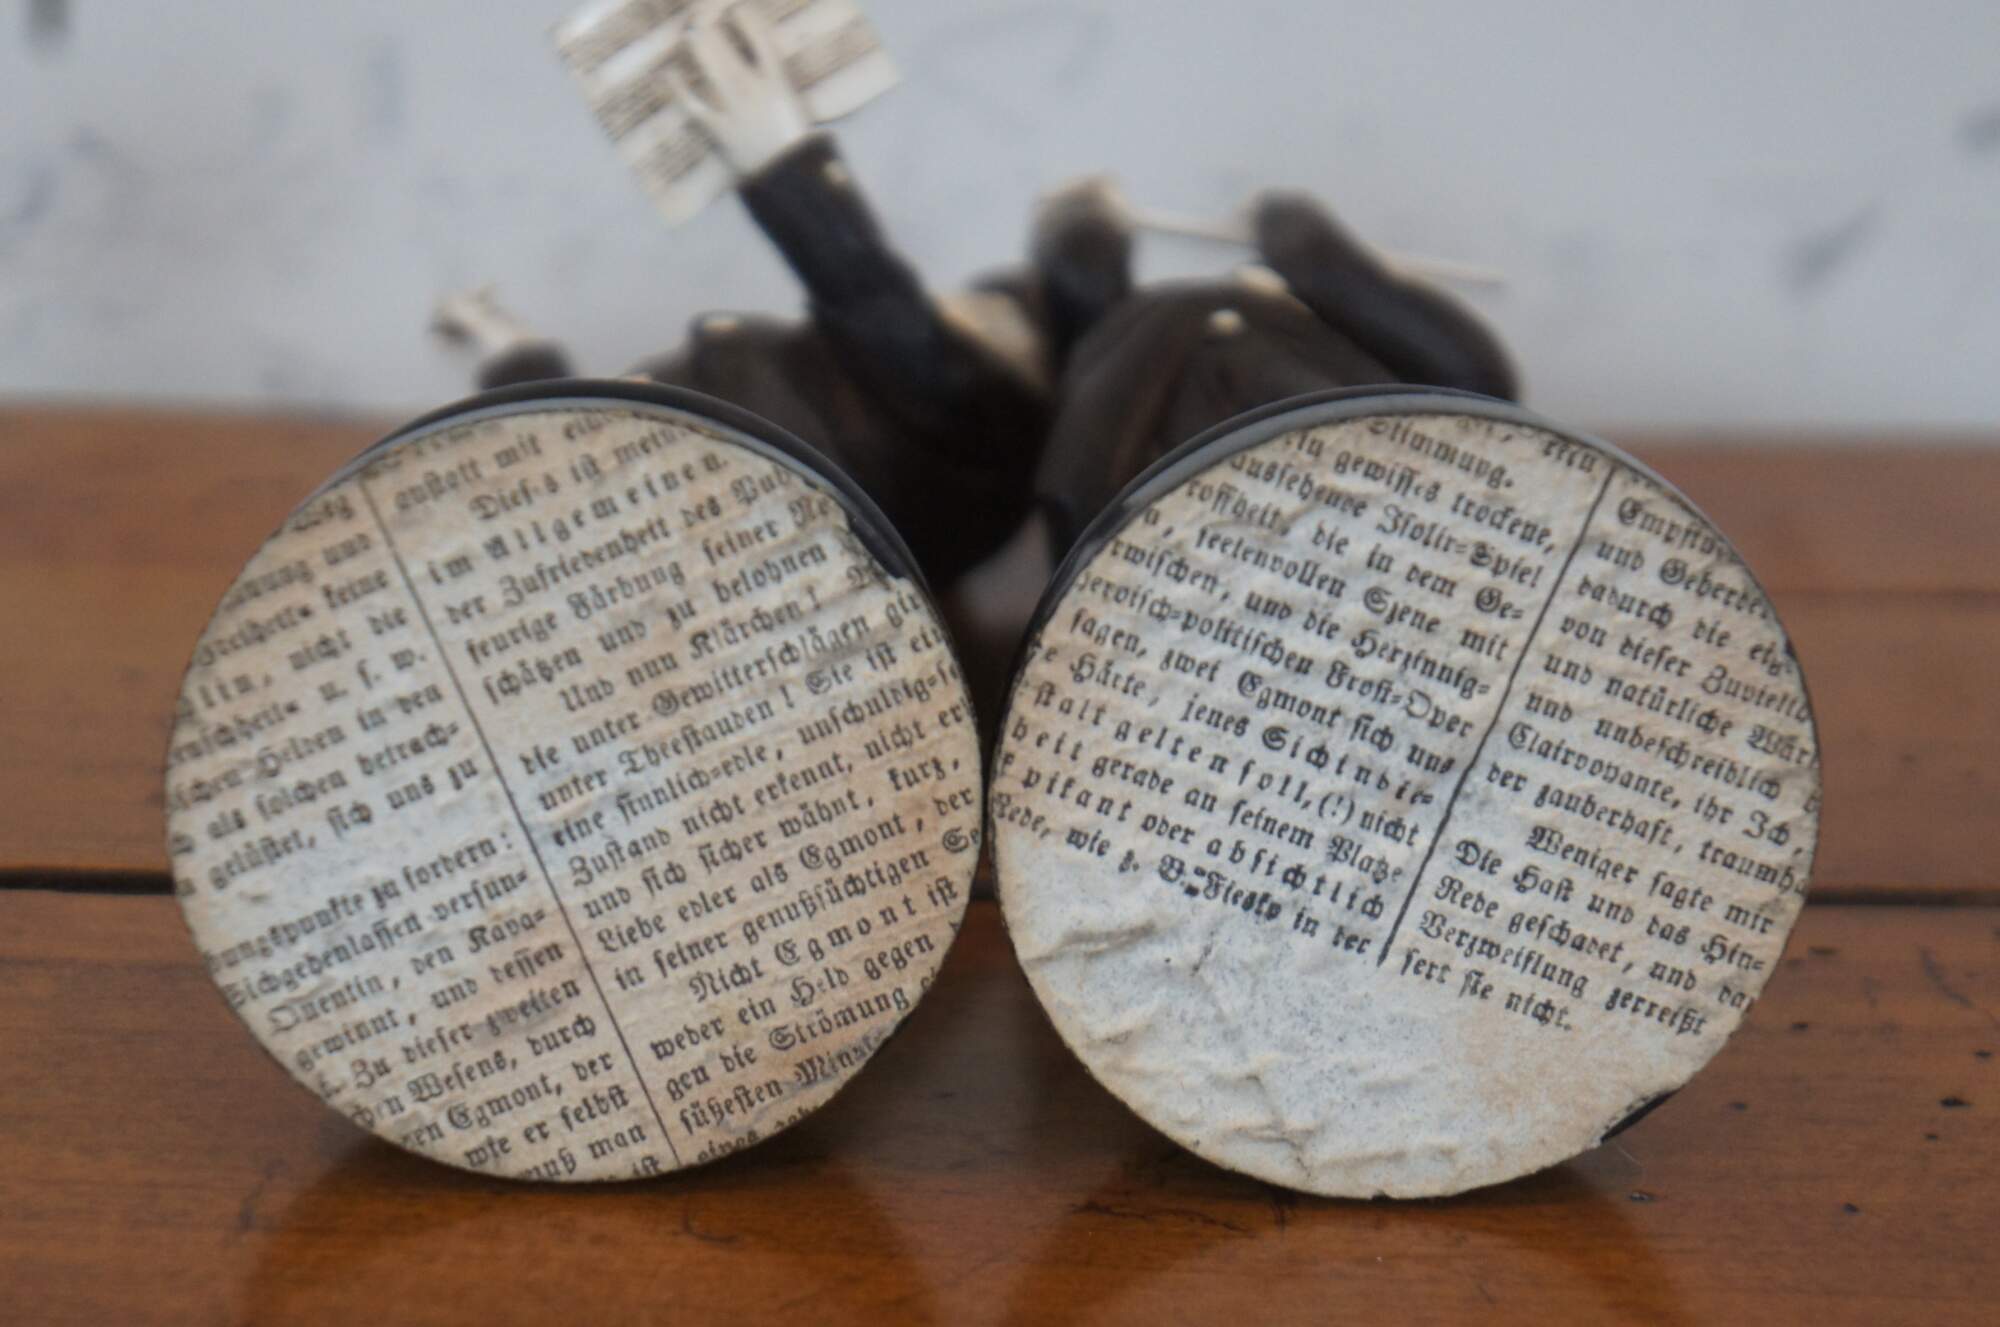 anstatt mit
Dieses ist mein
im Allgemeinen.
der Zufriedenheit des Pub
feurige Färbung seiner Re
schätzen und zu belohnen
Und nun Klärchen!
die unter Gewitterschlägen
unter Theestauden! Sie ist ein
eine sinnlich=edle, unschuldig=
Zustand nicht erkennt, nicht er
und sich sicher wähnt, kurz,
Liebe edler als Egmont, der
in seiner genußsüchtigen Se
Nicht Egmont ist
weder ein Held gegen
gen die Strömung
süßesten Minut
eines
und
Freiheit« keine
lin, nicht die
enschheit« u. s. w.
schen=Helden in den
als solchen betrach=
gelüstet, sich uns zu
ungspunkte zu fordern:
Sichgehenlassen versun=
Quentin, den Kava=
gewinnt, und dessen
Zu dieser zweiten
en Wesens, durch
en Egmont, der
wie er selbst
muß man
ist
Stimmung.
ein gewisses trockene,
aussehende Isolir=Spiel
roffheit, die in dem Ge=
seelenvollen Szene mit
rwischen, und die Herzinnig=
heroisch=politischen Frost=Oper
sagen, zwei Egmont sich uns
e Härte, jenes Sichindie=
stalt gelten soll, (!) nicht
heit gerade an seinem Platze
pikant oder absichtlich
Rede, wie z. B. Fiesko in der
Empfin
und Geberde
dadurch die
von dieser Zuvielh
und natürliche Wär
und unbeschreiblich
Clairvoyante, ihr Ich,
der zauberhaft, traumha
Weniger sagte mir
Die Hast und das Hin=
Rede geschadet, und da
Verzweiflung zerreißt
sert sie nicht.